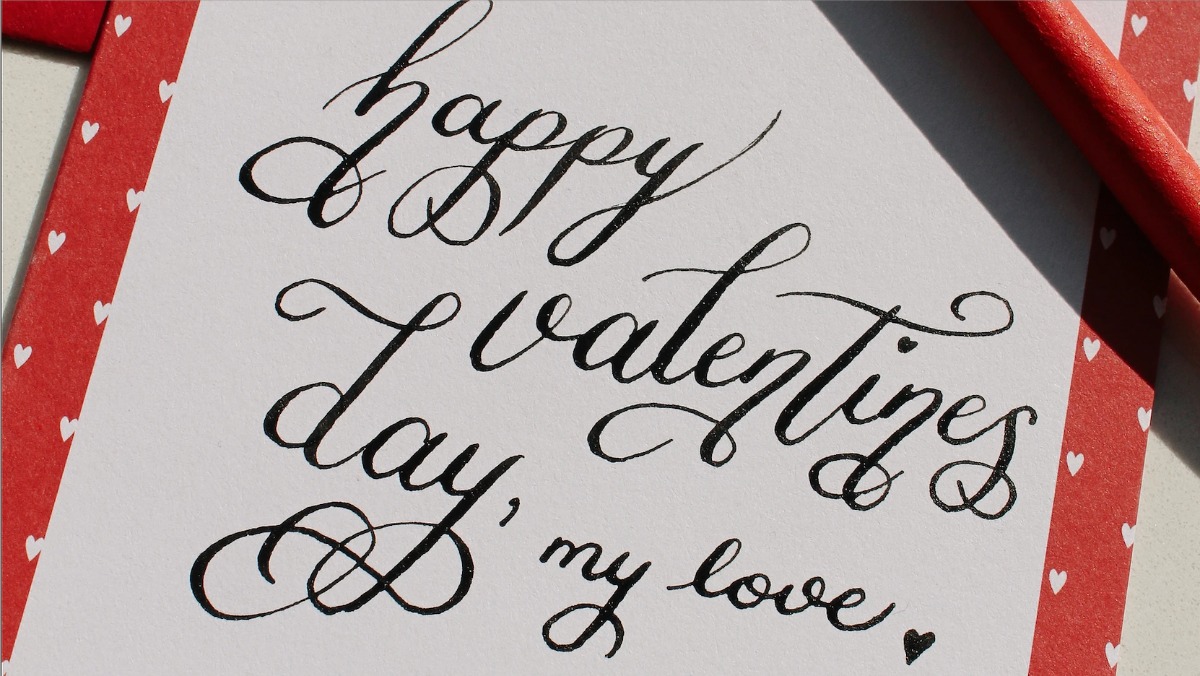 happy
valentines
day,
my love.